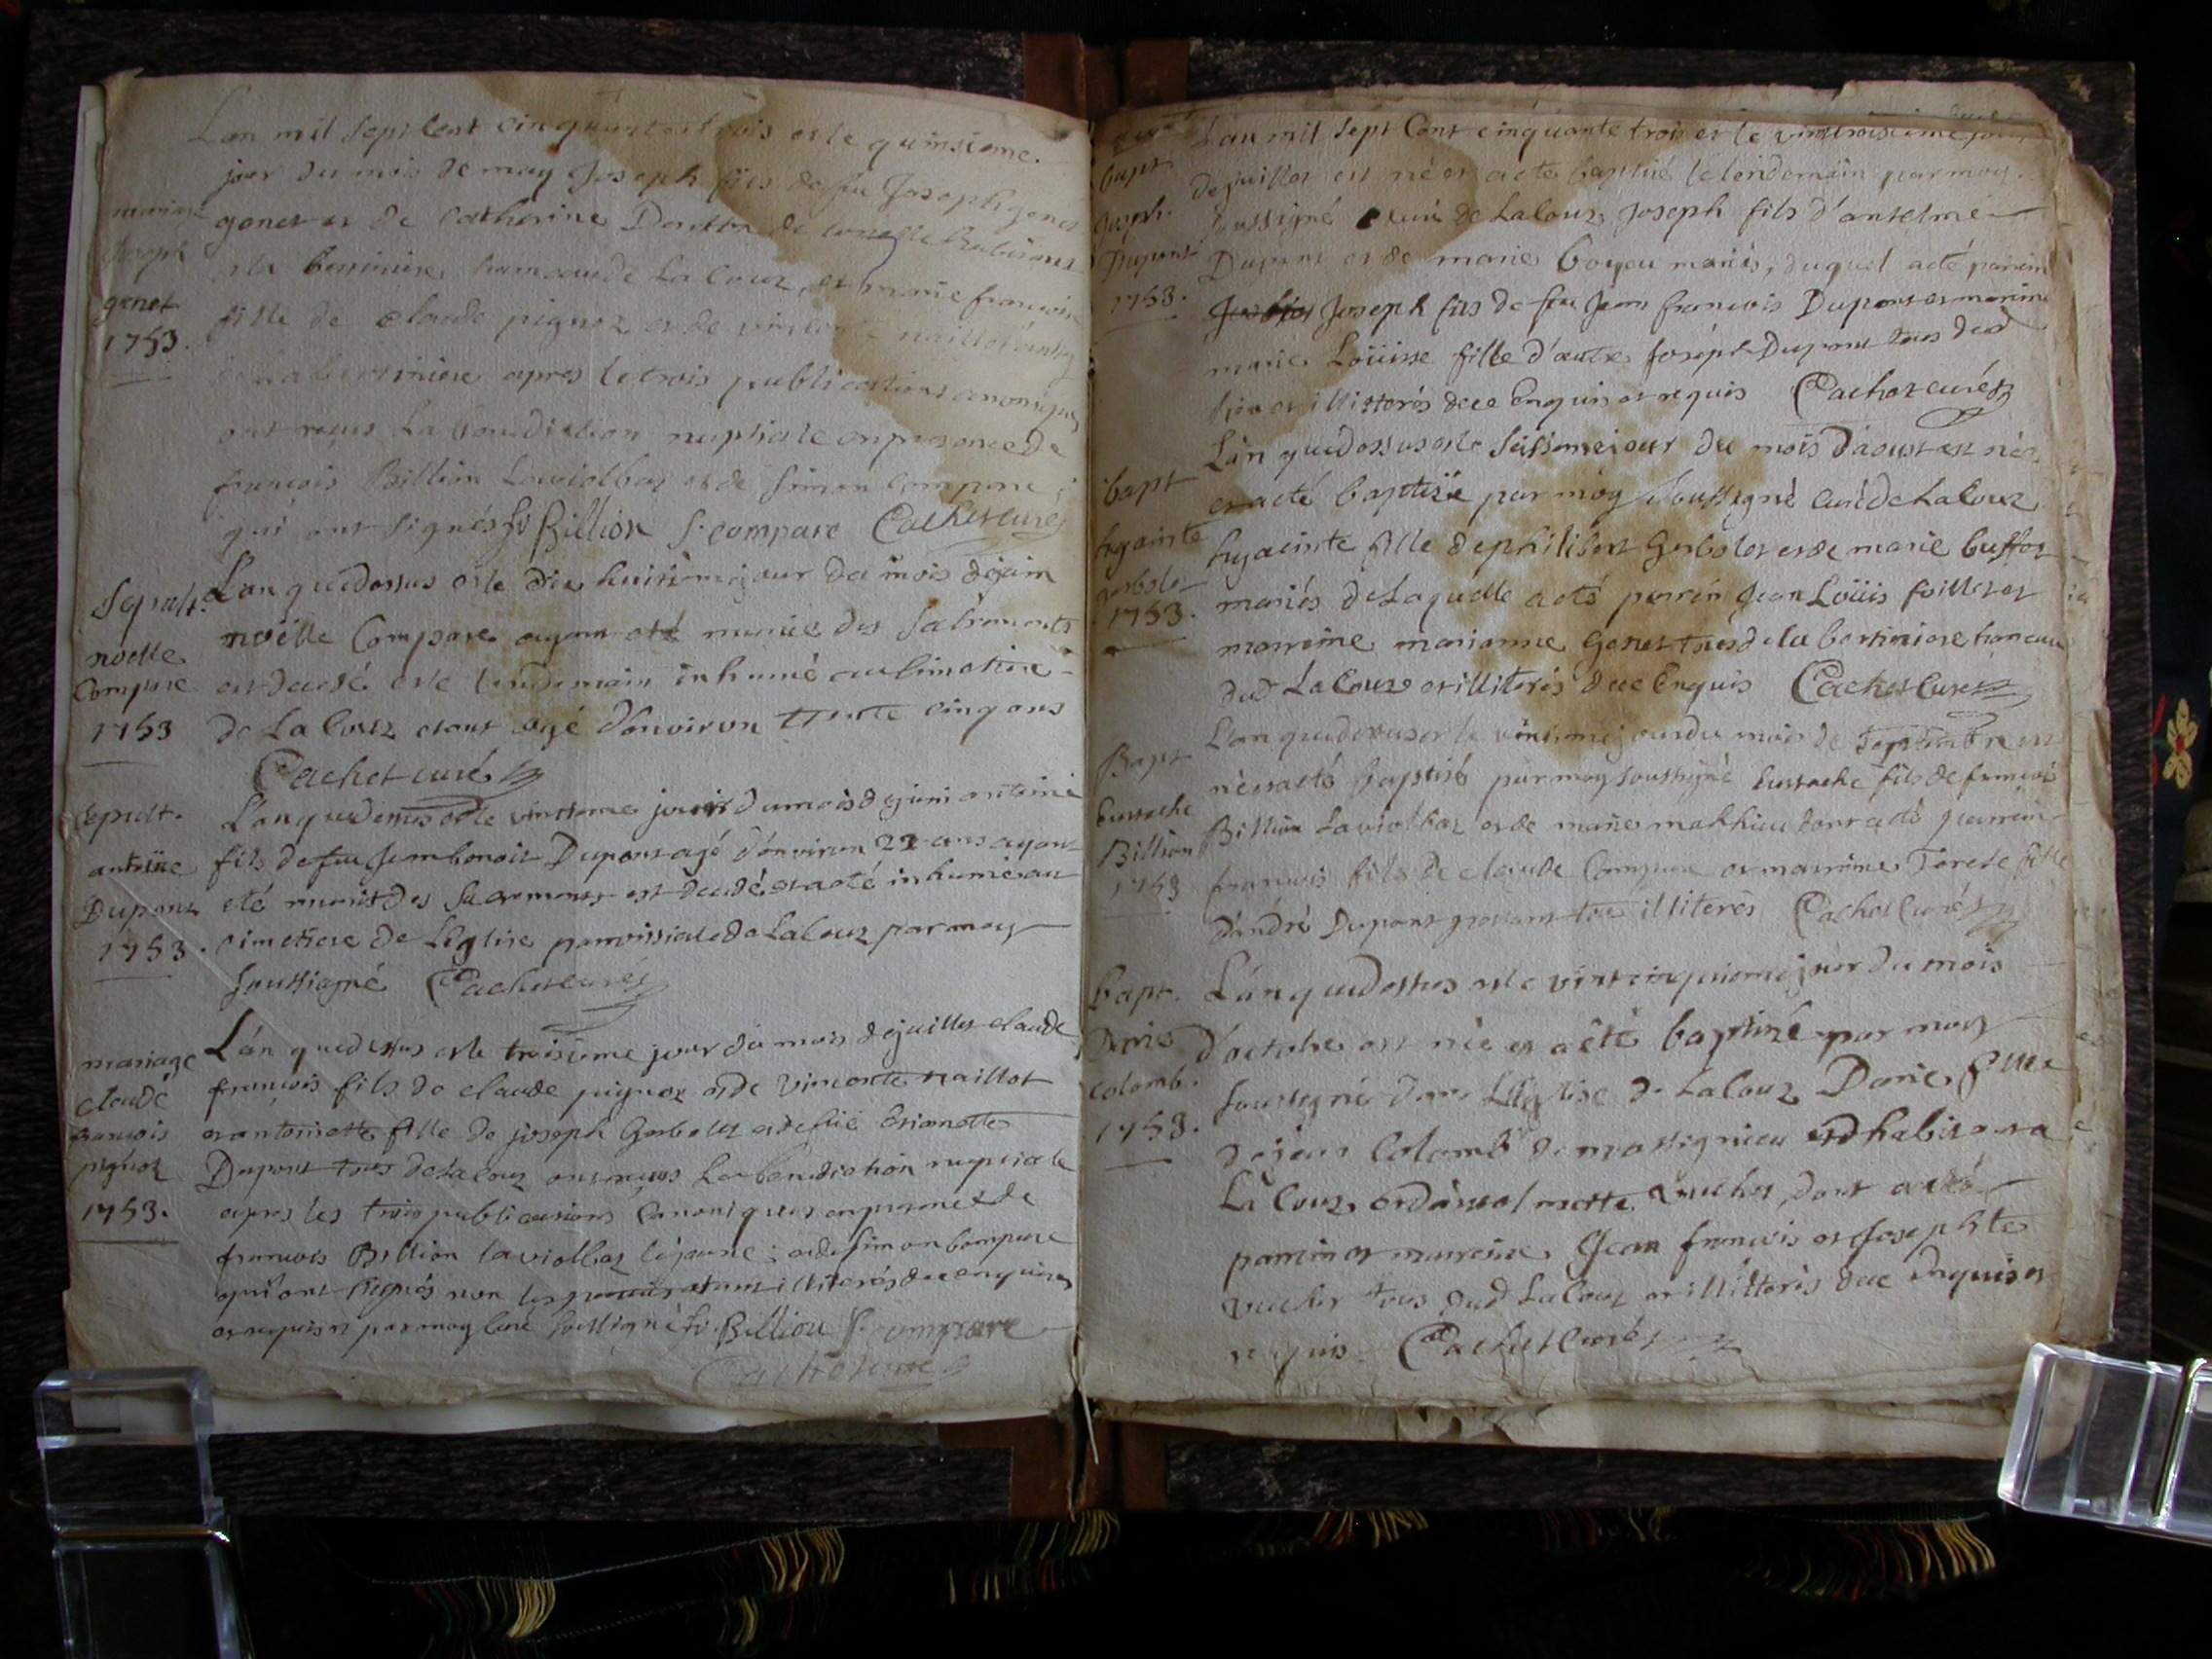 L'an mil sept cent cinquante et trois et le quinsieme
jour du mois de may Joseph fils de feu Joseph genet
genet et de Catherine
mariage
Joseph
genet
1753.
et la bertiniere hameau de La Couz, et marie francoise
fille de claude pignoz et de vincente naillot
bertiniere apres le trois publications canoniques
ont reçus La benediction nuptiale en presence de
francois Billion Laviolbaz et de simon compare
qui ont signés fs Billion S. compare Cachet curé
Sepult.
noelle
Compare
1753
L'an que dessus et le dix huitieme jour du mois de juin
noëlle Compare ayant eté munie des Sacrements
est decedé et le lendemain inhumé au cimetiere
de La Couz etant agé d'environ trente cinq ans
Cachet curé
sepult.
antoine
Dupont
1753.
L'an que dessus et le vintieme jour du mois de juin antoine
fils de feu Jean benoit Dupont agé d'environ 22 ans ayant
eté munit des Sacrements est decedé et a eté inhumé au
cimetiere de L'Eglise parroissiale de La Couz par moy
soussigné Cachet curé
mariage
claude
francois
pignoz
1753.
L'an que dessus et le troisieme jour du mois de juillet claude
francois fils de claude pignoz et de vincente naillot
et antoinette fille de joseph Gerbelet et de fuë
Dupont tous de La Couz ont reçus La benediction nuptiale
apres les trois publications Canoniques en presence de
francois Billion laviolbaz le jeune; et de simon compare
qui ont signés non les illiterés de ce enquis
et requis par moy curé soussigné fs. Billion S. compare
Cachet curé
bapt.
Joseph
Dupont
1753.
L'an mil sept Cent cinquante trois et le vint troisieme jour
de juillet est né et a eté baptisé le lendemain par moy
soussigné curé de La Couz, Joseph fils d'anselme
Dupont et de marie boyeu mariés, duquel a eté parrein
Joseph fils de feu Jean francois Dupont et marreine
marie Loüise fille d'autre Joseph Dupont tous dud
lieu et illitterés de ce Enquis et requis Cachet curé
bapt
hyacinte
gerbelet
1753.
L'an que dessus et le seisieme jour du mois d'aoust est née
et a eté baptisée par moy soussigné curé de La Couz
hyacinte fille de philibert Gerbelet et de marie buffet
mariés de Laquelle a eté parrein Jean Loüis foillet et
marreine marianne Genet tous de la bertiniere hameau
dud La Couz et illiterés de ce Enquis Cachet curé
Bapt
Eustache
Billion
1753
L'an que dessus et le vintieme jour du mois de septembre est
né et a eté baptisé par moy soussigné Eustache fils de francois
Billion Laviolbaz et de marie mathieu dont a eté parrein
francois fils de claude Compare et marreine Terese fille
d'andré Dupont tous illiterés Cachet curé
bapt.
Denise
Colomb.
1753.
L'an que dessus et le vint cinquieme jour du mois
d'octobre est née et a eté baptisé par moy
soussigné dans L'Eglise de La Couz Denise fille
de jean Colomb de massignieu et d'habitant a
La Couz, Vucher, dont a eté
parrein et marreine Jean francois et Josephte
Vucher tous dud La Couz et illitterés de ce Enquis et
requis. Cachet curé